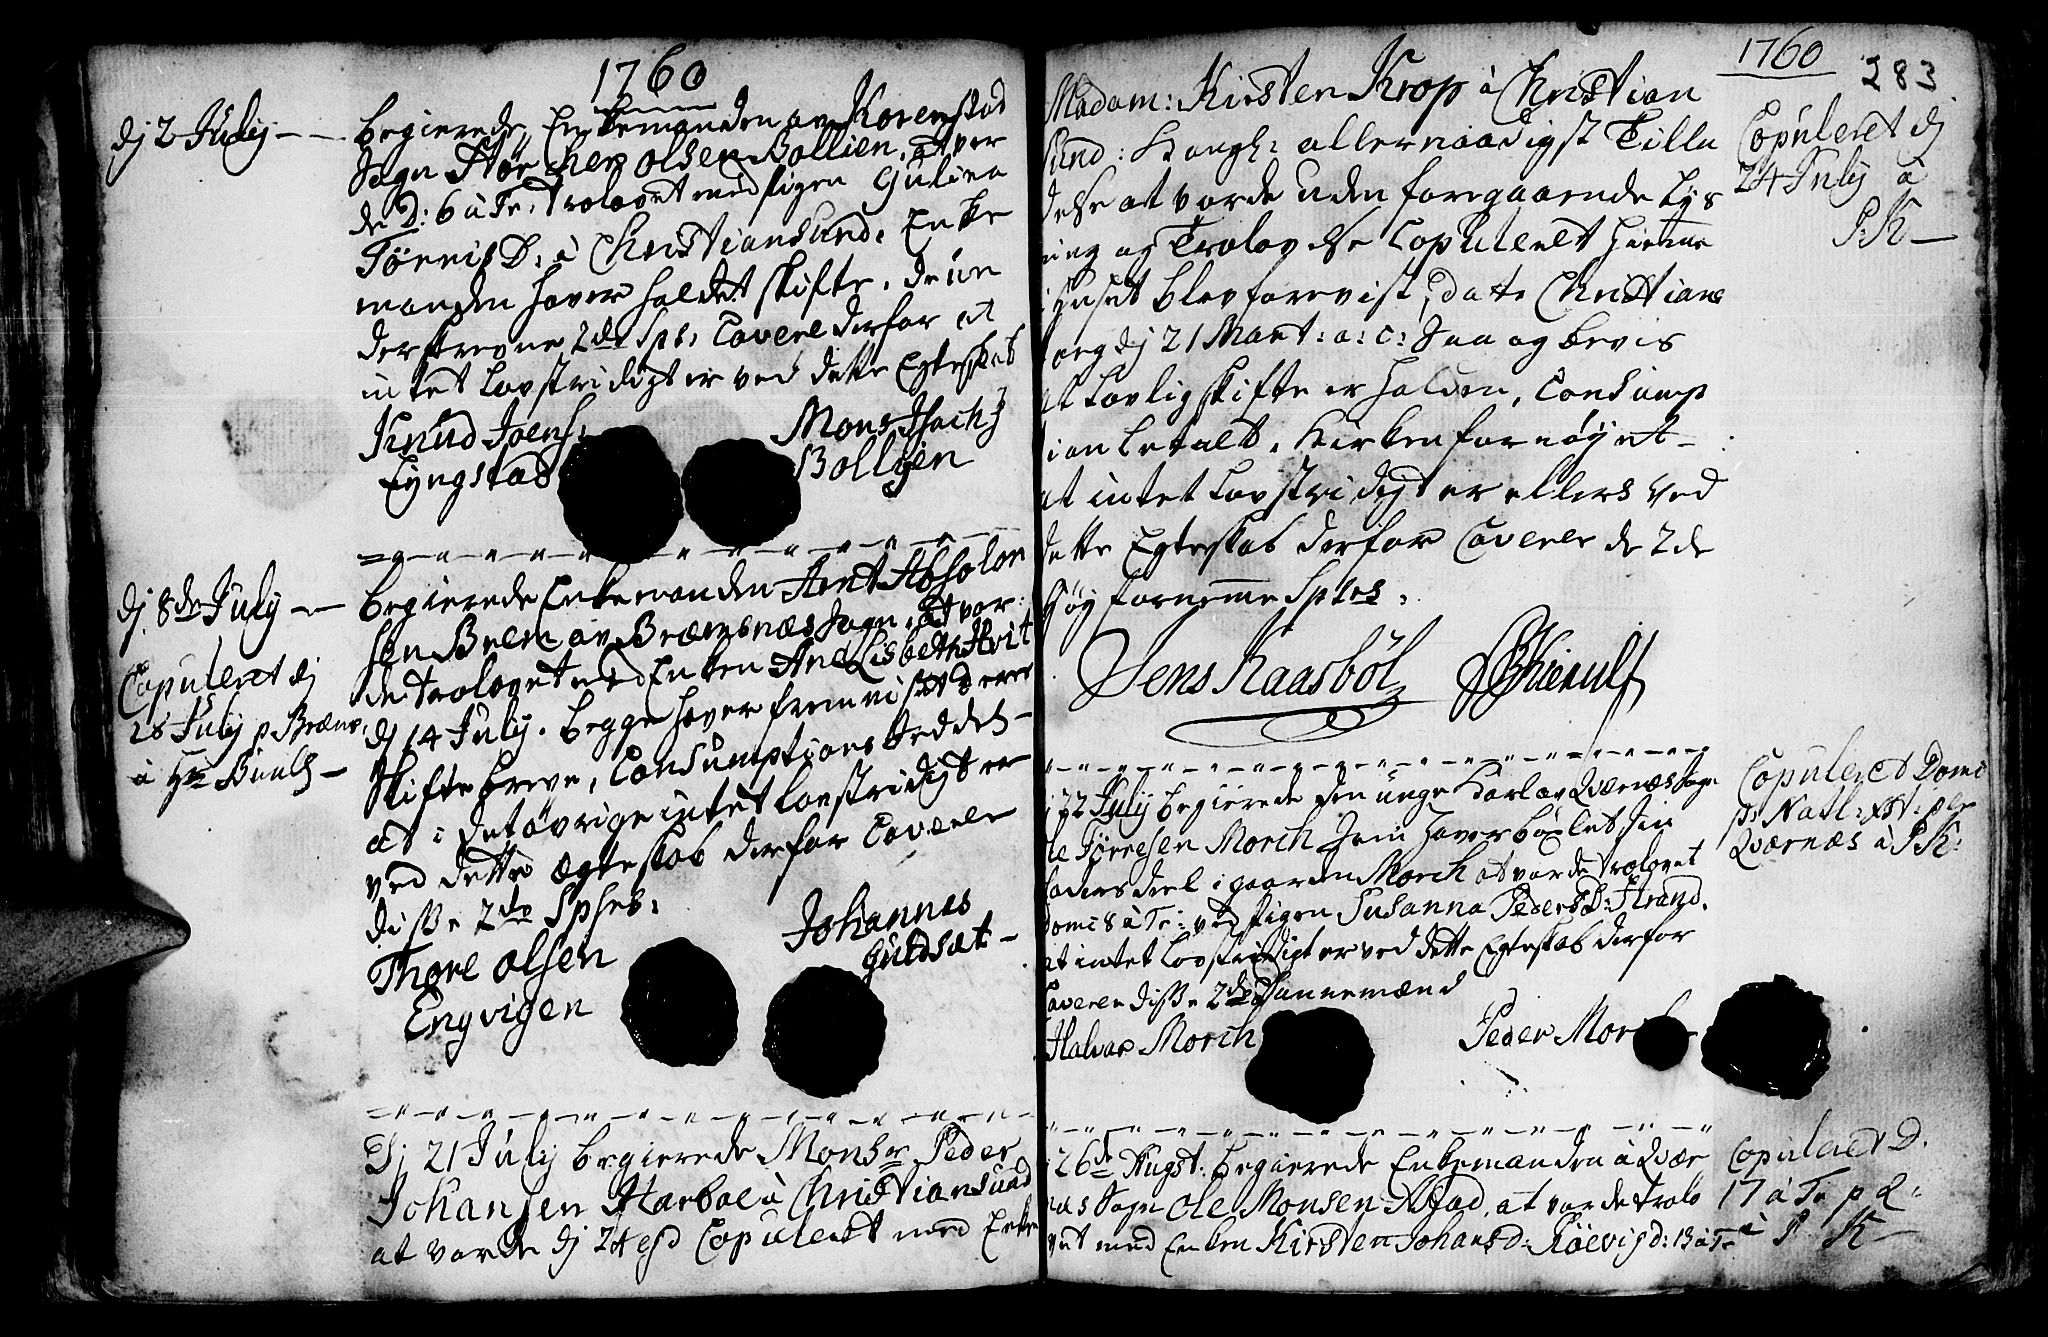 1760
dj 2 July —
begierede Enkemanden av Korenstad
Sogn Hör Cher Olsen Bollien, at vor
de D: 6 à Tr. trolovet med Pigen Guliena
Tönnis D: à Christiansund. Enke
manden haver holdet skifte, de un
derskrevne 2de Sps: Cavere derfor at
intet Lovstridigt er ved dette Egteskab
Knud Joens:
Lyngstad
Mons Isach
Bollien
dj 8de July —
Copuleret dj
28 July p Bræms.
à Hr Buuls —
begierede Enkemanden Arnt Absolon
sen Brem av Bræmsnæs Sogn, at vor
de trolovet med Enken Ane Lisbeth Hvit
dj 14 July. begge haver fremviset deres
Skifte breve, Consumptions Seddel —
at i det övrige intet Lovstridigt er
ved dette Ægteskab derfor Cavere
disse 2de Sphs:
Thore Olsen
Engvigen
Johannes
Guldsæt —
Dj 21 July begierede Monsr Peder
Johansen Harboe à Christiansund
at vorde dj 24 ejsd Copuleret med Enke
1760
283
Madam: Kirsten Krop à Christian
sund: Kongl: allernaadigst Tilla
delse at vorde uden foregaaende Lys
ning og Trolovelse Copuleret hiemme
i huset blev forevist, dat Christians
borg dj 21 Mart: a: c: Saa og bevis
at Lovlig skifte er holden, Consump
tion betalt, Kirken fornöyet —
at intet Lovstridigt er ellers ved
dette Egteskab derfor Cavere de 2de
Höy fornemme Sptes:
Jens Kaasböl
Hierulf
Copuleret dj
24 July à
P: K —
22 July begierede den unge Karl av Qværnæs Sogn
Ole Törresen Morch som haver böxlet sin
faders deel i gaarden Morch at vorde trolovet
Domi 8 à Tr: ved Pigen Susanna Peders D: Strand.
at intet Lovstridigt er ved dette Egteskab derfor
Cavere disse 2de Dannemænd
Halvor Morch
Peder Morch
Copuleret Domi
ps Natl: xst: p
Qværnæs à P K:
26de Augst: begierede Enkemanden à Qvær
næs Sogn Ole Monsen Stad, at vorde trolo
vet med Enken Kirsten Johansd: Röevig d: 13 à Tr
Copuleret D.
17 à Tr p Q:
à P K —